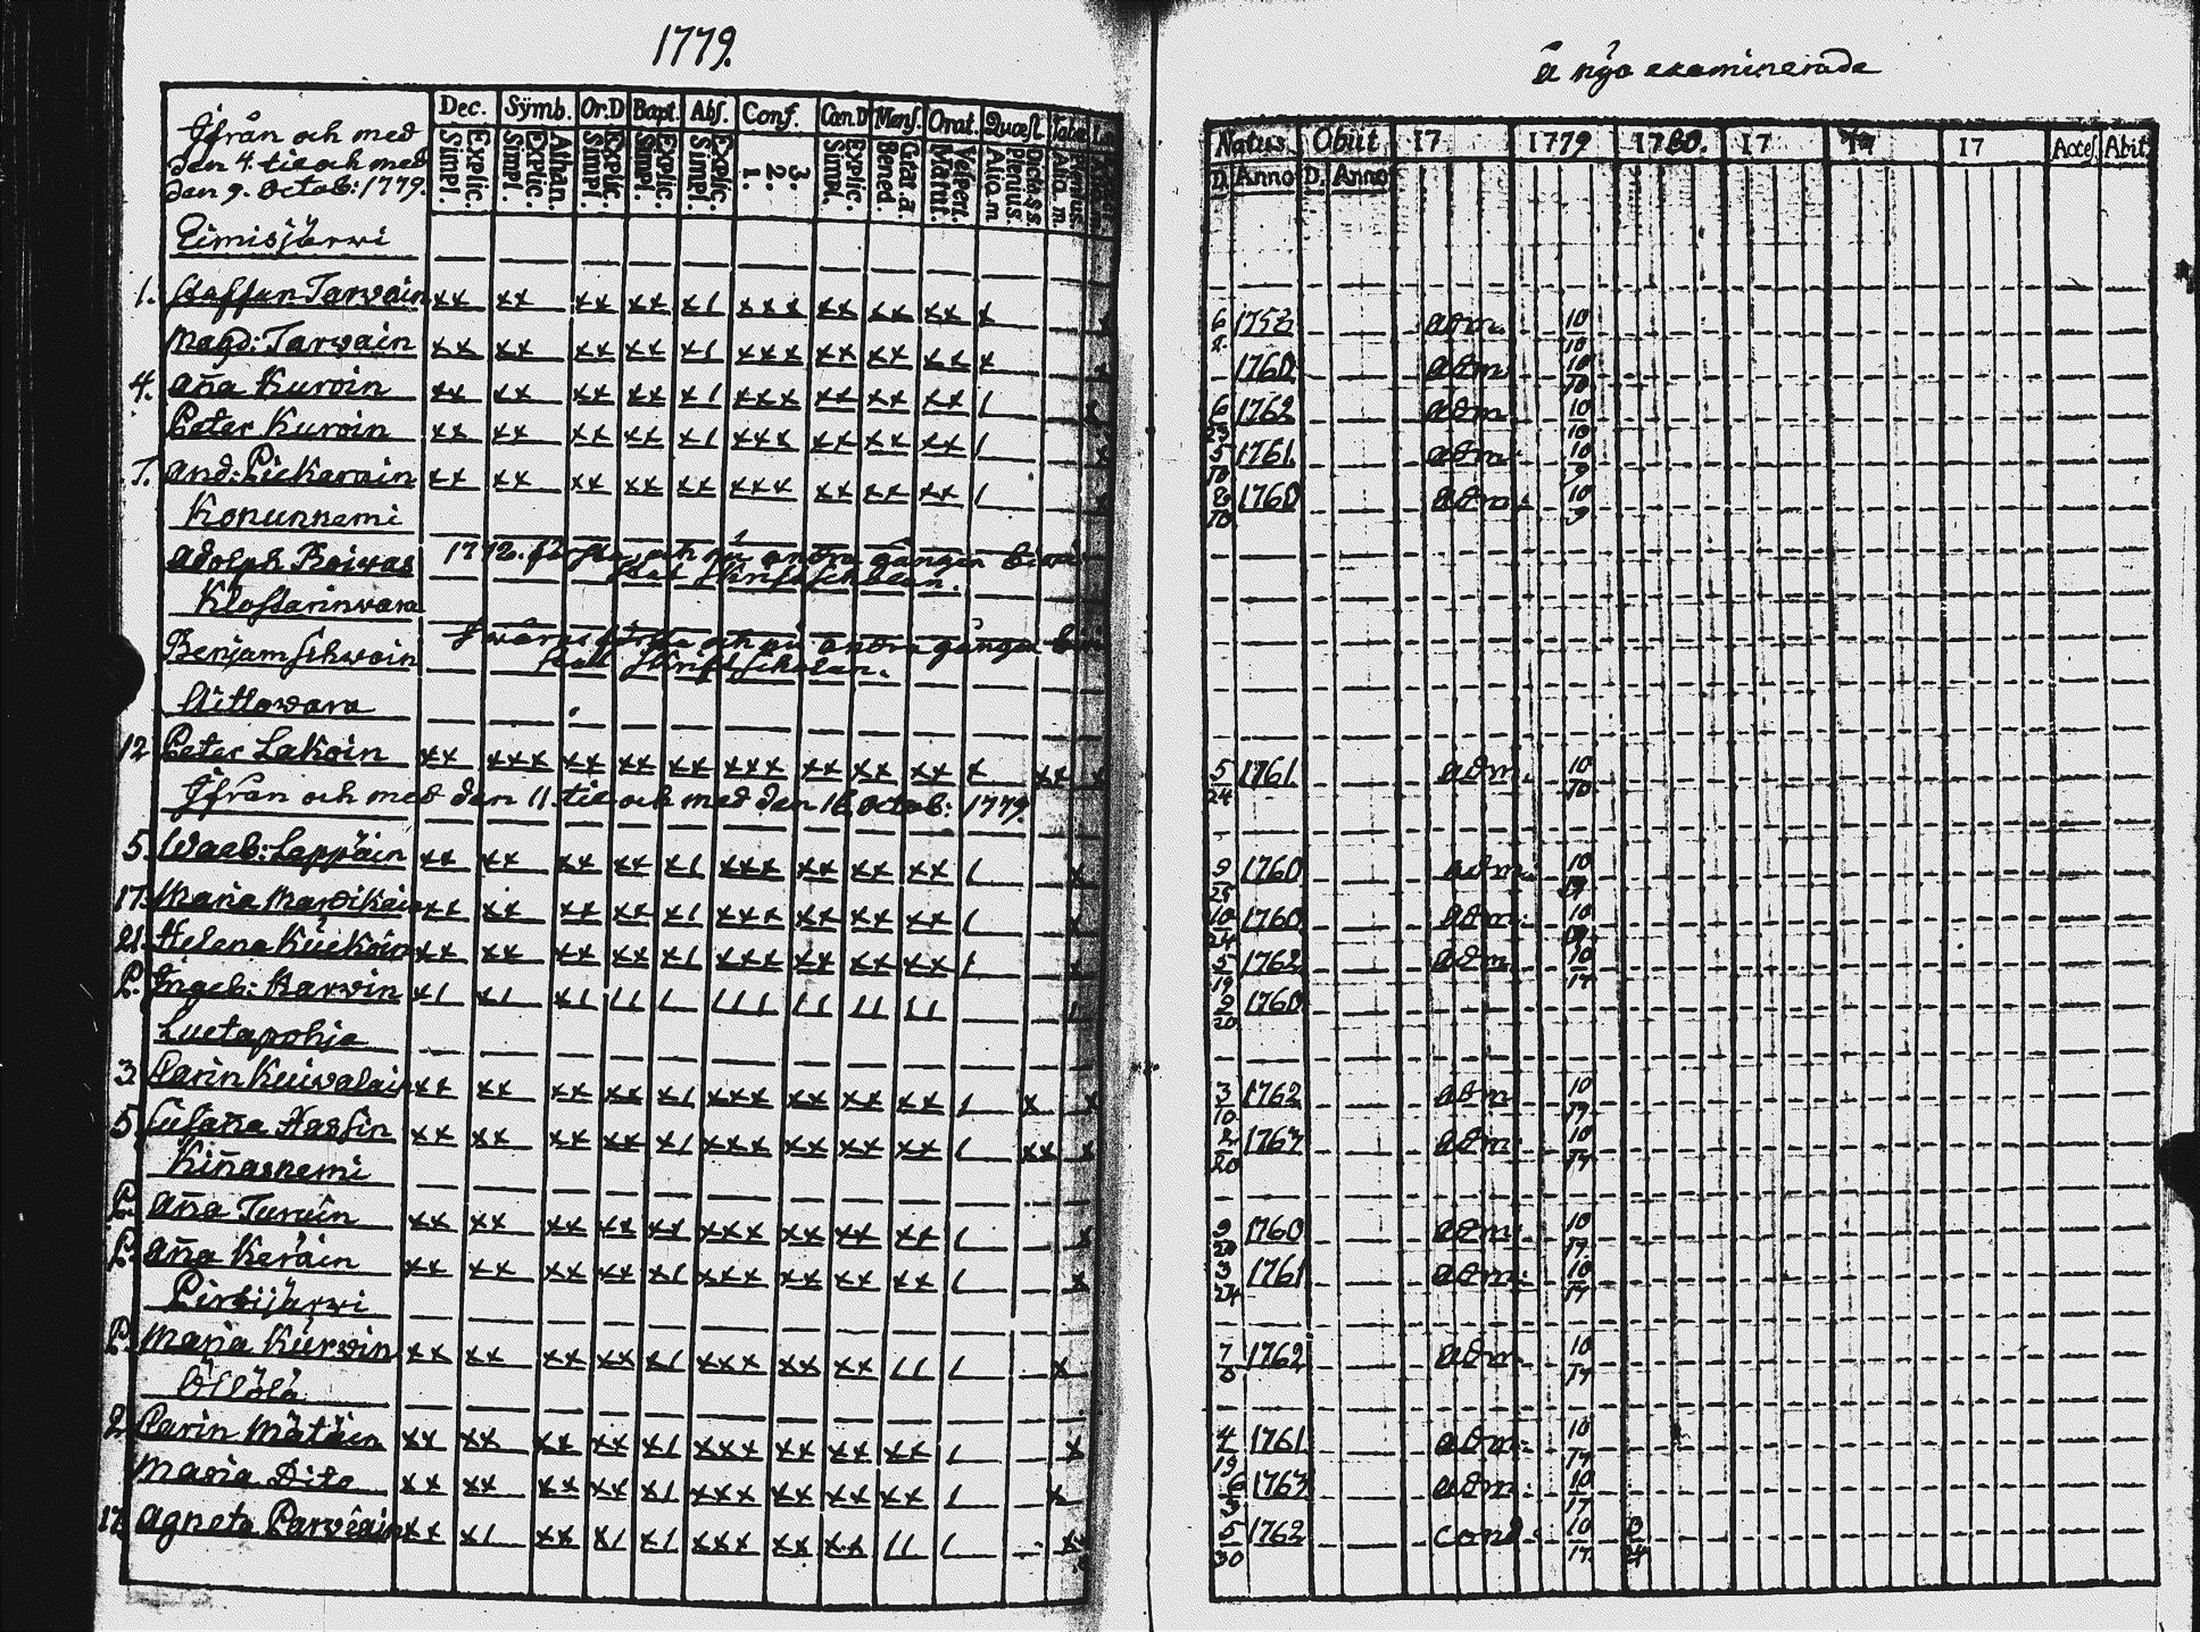 1779.
å nyo examinerade
Dec. Symb. Or.D Bapt. Abs. Conf. Can D Mens. Orat. Quæst. Tabu.
Explic. Simpl. Athan. Explic. Simpl. Explic. Simpl. Explic. Simpl. Explic. Simpl. 3. 2. 1. Explic. Simpl. Grat. a. Bened. Vespert. Matut. Dicta s.s. Plenius. Alio. m Plenius. Alio. m
Natus. Obiit 17 1779 1780. 17 17 17 Acces. Abit.
D. Anno D. Anno
Ifrån och med
den 4. til och med
den 9. Octob: 1779.
Eimisjärwi
1. Staffan Tarwain xx xx xx xx x1 xxx xx xx xx x x 6 1752 adm. 10 10
Magd: Tarwain xx xx xx xx x1 xxx xx xx xx x x 1760 adm. 10 10
4. Aña Kuroin xx xx xx xx x1 xxx xx xx xx 1 x 6 23 1762 adm. 10 10
Peter Kuroin xx xx xx xx x1 xxx xx xx xx 1 x 5 10 1761 adm. 10 9
7. And: Pickarain xx xx xx xx xx xxx xx xx xx 1 x 1760 adm. 10 9
Konunnemi
Adolph Roivas 1772. första och nu andra gången
Skriftscholan.
Klostarinwara
Benjam Sihvoin första och nu andra gången
Skriftscholan.
Aittowara
12 Peter Lakoin xx xxx xx xx xx xxx xx xx xx x xx x 5 24 1761 adm. 10 10
Ifrån och med den 11. til och med den 16. Octob: 1779
5. Walb: Lappain xx xx xx xx x1 xxx xx xx xx 1 x 9 25 1760 adm. 10
17. Maria Mardikain xx xx xx xx x1 xxx xx xx xx 1 x 10 24 1760 adm. 10
21. Helena Kückoin xx xx xx xx x1 xxx xx xx xx 1 x 5 19 1762 adm. 10 17
P. Ingeb: Karvin x1 x1 x1 11 1 111 11 11 11 1 2 20 1760
Luetapohja
3 Carin Kuivalain xx xx xx xx x1 xxx xx xx xx 1 x x 3 10 1762 adm 10 17
5. Susaña Hassin xx xx xx xx x1 xxx xx xx xx 1 xx x 2 20 1767 adm. 10 17
Kiñasnemi
P. Aña Turuin xx xx xx xx xx xxx xx xx xx 1 x 9 1760 adm. 10 17
P. Aña Keräin xx xx xx xx x1 xxx xx xx xx 1 x 3 24 1761 adm. 10 17
Pirttijärwi
P. Maria Kierwin xx xx xx xx x1 xxx xx xx 11 1 x 7 1762 adm. 10 17
Öllölä
2. Carin Mätäin xx xx xx xx x1 xxx xx xx xx 1 x 4 19 1761 adm. 10 17
Maria Dito xx xx xx xx x1 xxx xx xx xx 1 x 1767 adm. 10 17
12. Agneta Parviain xx x1 xx x1 x1 xxx xx xx 11 1 xx 5 30 1762 cond. 10 17